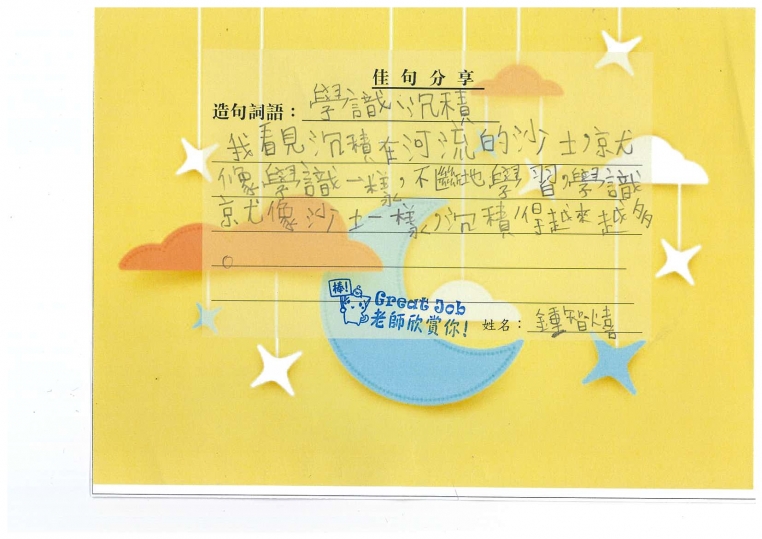 佳句分享
造句詞語：學識 沉積
我看見沉積在河流的沙土，就
像學識一樣，不斷地學習，學識
就像沙土一樣，沉積得越來越多
。
棒!
Great Job
老師欣賞你!
姓名：鍾智熺